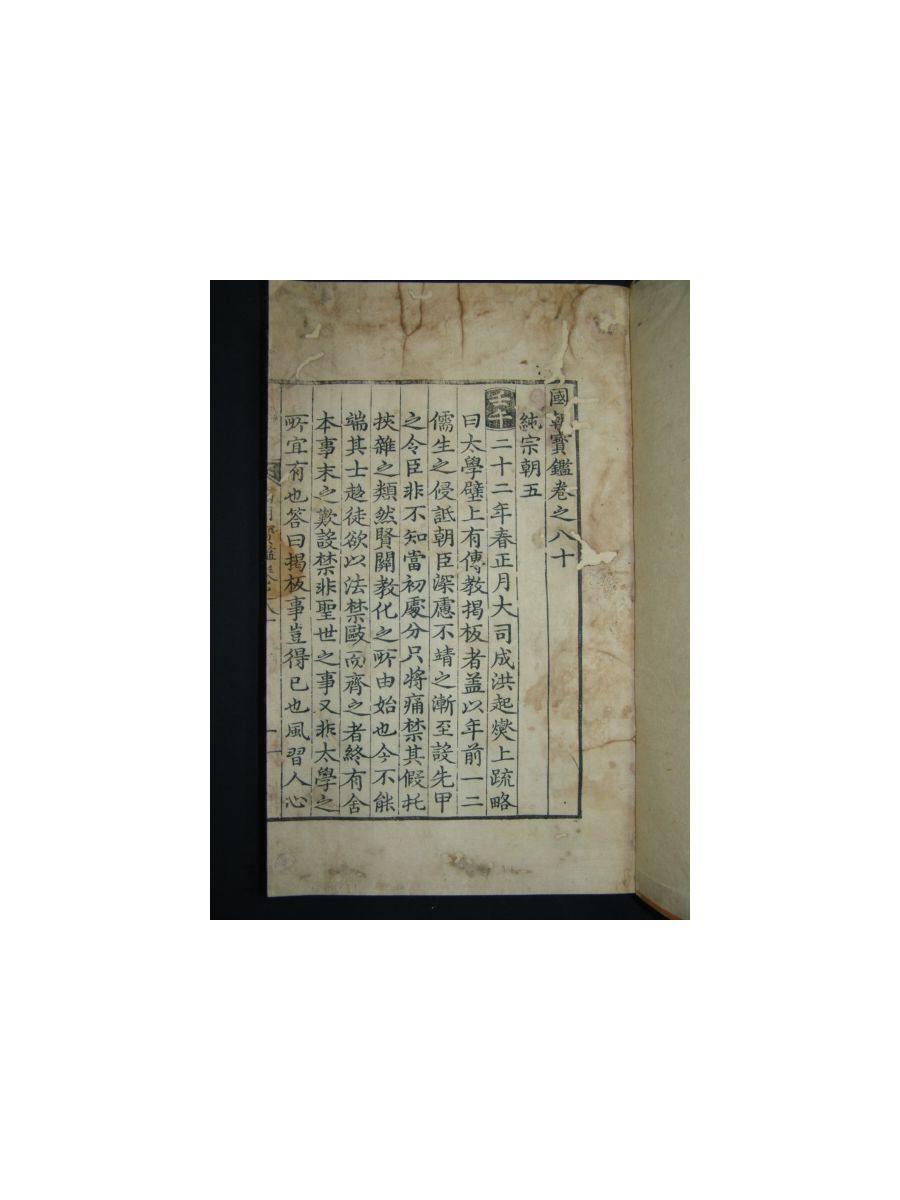 國朝寶鑑卷之八十
純宗朝五
壬午二十二年春正月大司成洪起燮上疏略
曰太學壁上有傳教揭板者盖以年前一二
儒生之侵詆朝臣深慮不靖之漸至設先甲
之令臣非不知當初處分只將痛禁其假托
挾雜之類然賢關教化之所由始也今不能
端其士趍徒欲以法禁敺而齊之者終有舍
本事末之歎設禁非聖世之事又非太學之
所宜有也答曰揭板事豈得已也風習人心